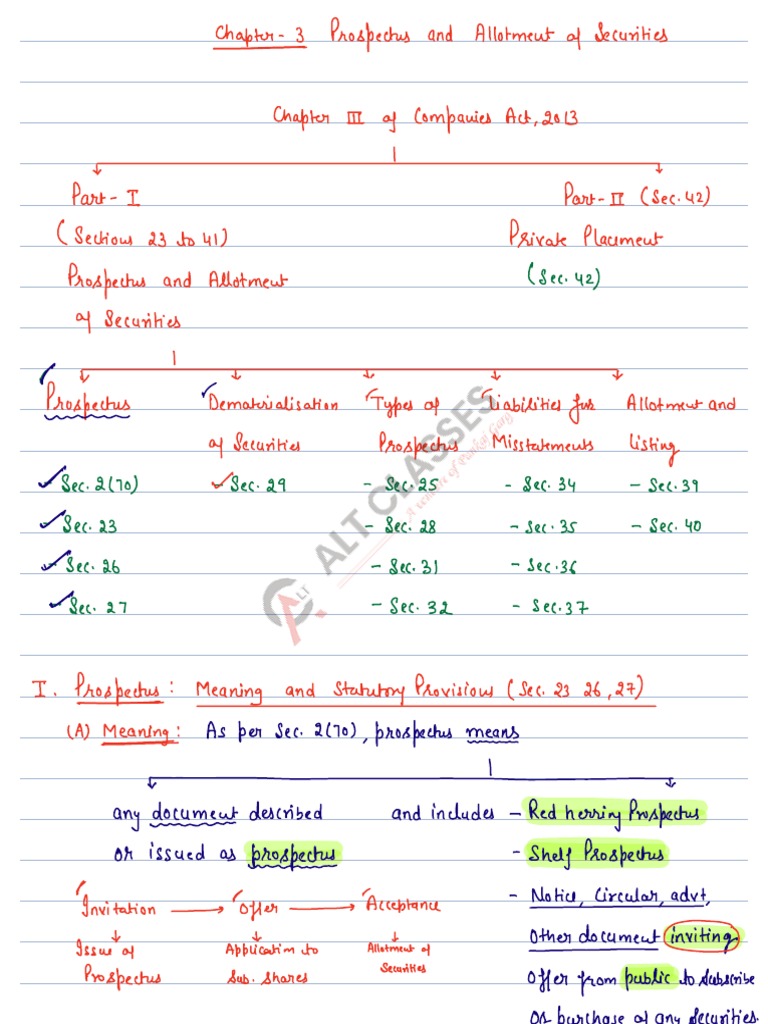 Chapter-3 Prospectus and Allotment of Securities
Chapter III of Companies Act, 2013
Part-I Part-II (Sec.42)
(Sections 23 to 41) Private Placement
Prospectus and Allotment (Sec.42)
of Securities
Prospectus Dematerialisation Types of Liabilities for Allotment and
of Securities Prospectus Misstatements Listing
Sec. 2(70) Sec. 29 - Sec. 25 - Sec. 34 - Sec. 39
Sec. 23 - Sec. 28 - Sec. 35 - Sec. 40
Sec. 26 - Sec. 31 - Sec. 36
Sec. 27 - Sec. 32 - Sec. 37
ALT CLASSES
A venture of Pankaj Garg
LT
I. Prospectus: Meaning and Statutory Provisions (Sec. 23 26, 27)
(A) Meaning: As per Sec. 2(70), prospectus means
any document described and includes - Red herring Prospectus
or issued as prospectus - Shelf Prospectus
- Notice, Circular, advt,
Invitation Offer Acceptance
Other document inviting
Issue of Application to Allotment of
Prospectus Sub. Shares Securities
Offer from public to subscribe
or purchase of any securities.